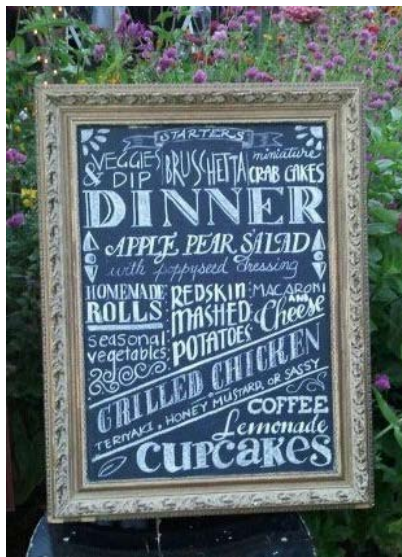 STARTERS
VEGGIES & DIP
BRUSCHETTA
miniature CRAB CAKES
DINNER
APPLE PEAR SALAD
with poppyseed dressing
HOMEMADE ROLLS
seasonal vegetables
REDSKIN MASHED POTATOES
MACARONI AND Cheese
GRILLED CHICKEN
TERIYAKI, HONEY MUSTARD, OR SASSY
COFFEE
Lemonade
CUPCAKES